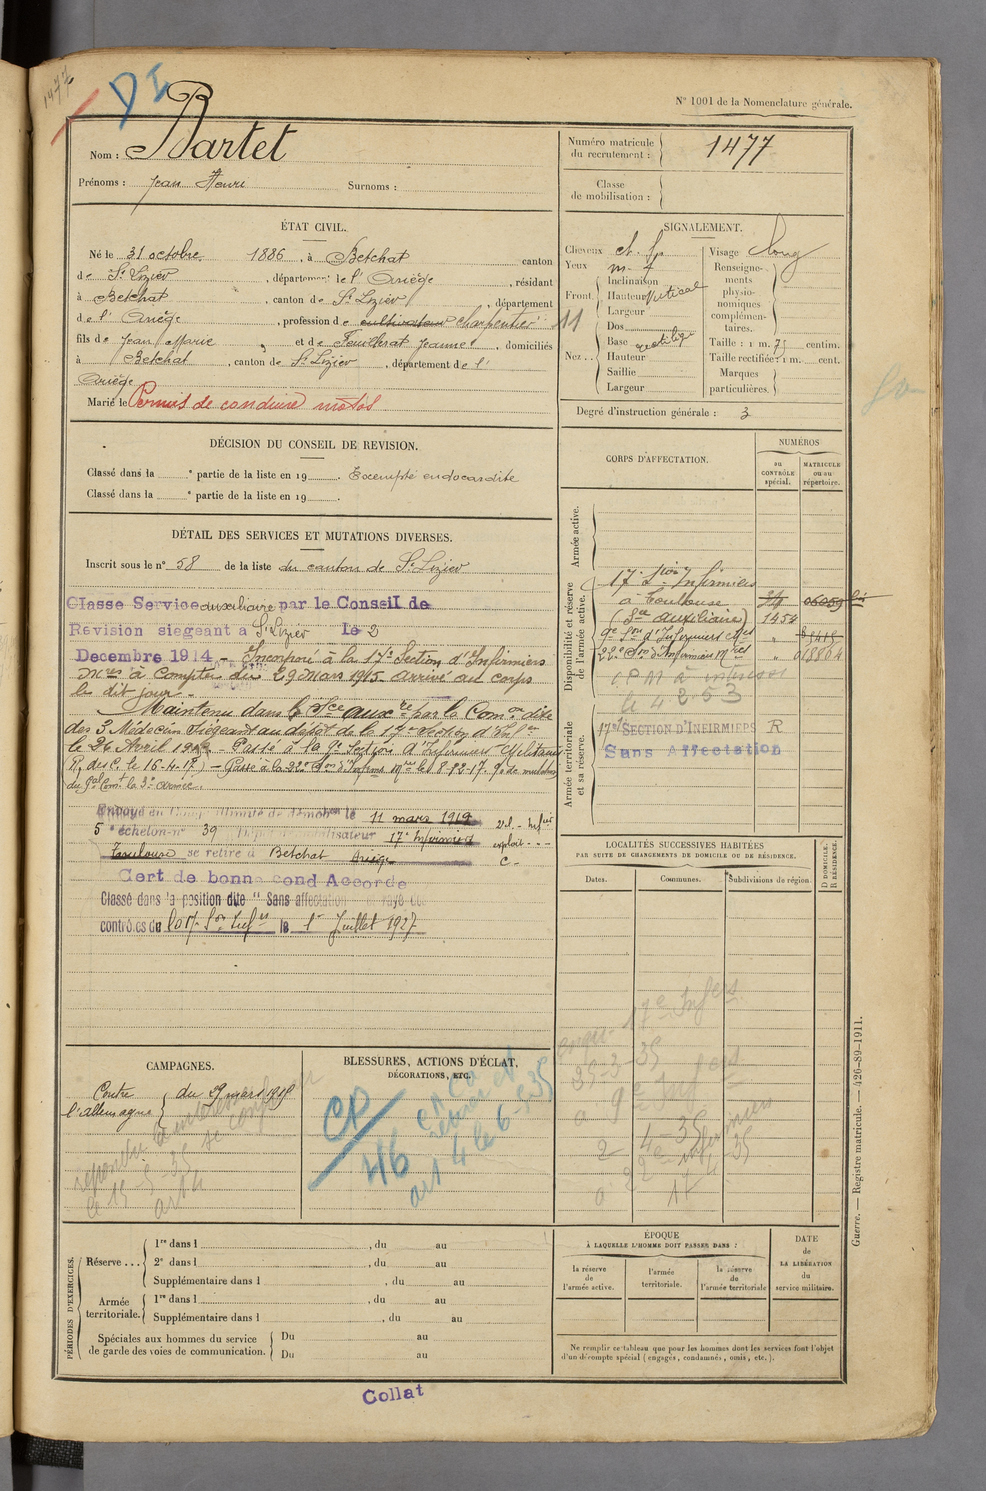 1477
DI
N° 1001 de la Nomenclature générale.
Nom : Bartet
Prénoms : Jean Henri Surnoms :
Numéro matricule du recrutement : 1477
Classe de mobilisation :
ÉTAT CIVIL.
Né le 31 octobre 1886, à Betchat canton
de St Lizier, département de l' Ariège, résidant
à Betchat, canton de St Lizier, département
de l' Ariège, profession de cultivateur charpentier 11
fils de Jean Marie et de Jeanne, domiciliés
à Betchat, canton de St Lizier, département de l'
Ariège
Marié le Permis de conduire motos
SIGNALEMENT.
Cheveux ch. f.
Yeux m. f
Front Inclinaison
Hauteur Vertical
Largeur
Nez Dos
Base
Hauteur
Saillie
Largeur
Visage long
Renseignements physionomiques complémentaires.
Taille : 1 m. 75 centim.
Taille rectifiée : 1 m. cent.
Marques particulières.
Degré d'instruction générale : 3
DÉCISION DU CONSEIL DE REVISION.
Classé dans la e partie de la liste en 19 . Exempté endocardite
Classé dans la e partie de la liste en 19 .
DÉTAIL DES SERVICES ET MUTATIONS DIVERSES.
Inscrit sous le n° 58 de la liste du canton de St Lizier
Classe Service auxiliaire par le Conseil de
Revision siegeant a St Lizier le 2
Decembre 1914 - Incorporé à la 17e Section d'Infirmiers
Mres à compter du 29 Mars 1915. arrivé au corps
le dit jour.
Maintenu dans le Sce auxre par la Comon dite
des 3 Médecins siégeant au dépôt de la 17e Section d'Infers
le 26 Avril 191 - Passé à la 9e Section d'Infirmiers Militaires
le 16-4-17) - Passé à la 22e Son d'Infirm Mres le 8-12-17.
du Gal Comt la 3e armée.
le 11 mars 1919
5e échelon n° 39 17e Infirmiers
Toulouse se retire à Betchat Ariège
Cert de bonne cond Accorde
Classé dans la position dite "Sans affectation" et rayé des
contrôles du la 17e Son Infrs le 1er Juillet 1927
CORPS D'AFFECTATION.
NUMÉROS
au CONTRÔLE spécial.
MATRICULE ou au répertoire.
Armée active.
Disponibilité et réserve de l'armée active.
17e Son Infirmiers
à Toulouse
(Sce auxiliaire) 1454
9e Son d'Infirmiers Mres "
22e Son d'Infirmiers Mres " 018864
le 4.2.53
Armée territoriale et sa réserve.
17e SECTION D'INFIRMIERS R
Sans Affectation
LOCALITÉS SUCCESSIVES HABITÉES
PAR SUITE DE CHANGEMENTS DE DOMICILE OU DE RÉSIDENCE.
Dates. Communes. Subdivisions de région.
D DOMICILE. R RÉSIDENCE.
CAMPAGNES.
Contre l'allemagne du 29 mars 1915
BLESSURES, ACTIONS D'ÉCLAT,
DÉCORATIONS, ETC.
CP
46
art 4 le 6-5-35
le 15-5-35
art 4
17e Infers
PÉRIODES D'EXERCICES.
Réserve ... 1re dans l , du au
2e dans l , du au
Supplémentaire dans l , du au
Armée territoriale. 1re dans l , du au
Supplémentaire dans l , du au
Spéciales aux hommes du service de garde des voies de communication. Du au
Du au
ÉPOQUE
À LAQUELLE L'HOMME DOIT PASSER DANS :
la réserve de l'armée active.
l'armée territoriale.
la réserve de l'armée territoriale
DATE de LA LIBÉRATION du service militaire.
Ne remplir ce tableau que pour les hommes dont les services font l'objet
d'un décompte spécial (engagés, condamnés, omis, etc.).
Guerre. — Registre matricule. — 426-89-1911.
Collat